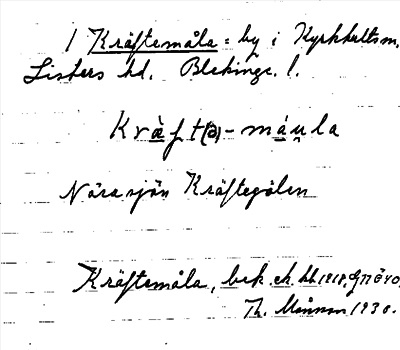 1 Kräftemåla = by i Kyrkhultsm.
Listers hd. Blekinge. l.
Kràft(ə)-máu̯la
Nära sjön Kräftegölen
Kräftemåla, bek. ek. kb 1918,
Th. 1930.